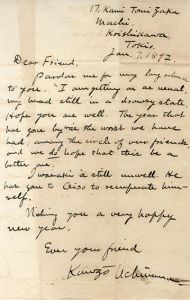 17, Kami Tomi Zaka
Machi,
Koishikawa
Tokio,
Jan. 7, 1892
Dear Friend,
Pardon me for my long silence
to you. I am getting on as usual,
my head still in a drowsy state.
Hope you are well. The year that
has gone by is the worst we have
had, among the circle of our friends,
and we do hope that this be a
better one.
Iwasaki is still unwell. He
has gone to Oiso to recuperate him-
self.
Wishing you a very happy
new year.
Ever your friend
Kanzo Uchimura